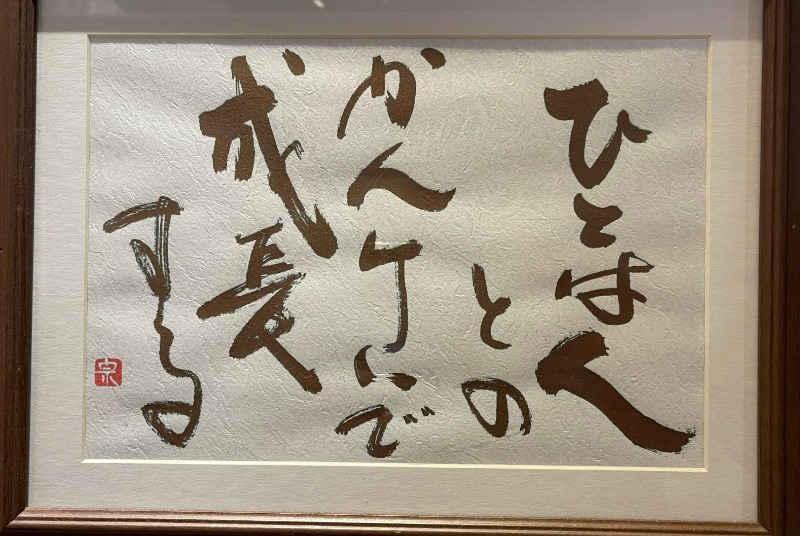 ひとは人
との
かんけいで
成長
する